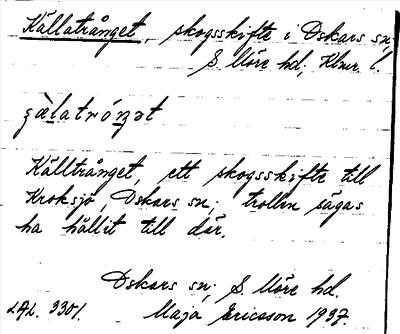 Källatrånget, skogsskifte i Oskars sn,
S. Möre hd, Klmr. l.
çä̀latrón̠ət
Källtrånget, ett skogsskifte till
Kroksjö, Oskars sn; trollen sägas
ha hållit till där.
Oskars sn, S. Möre hd.
LAL. 3301. Maja Ericsson 1937